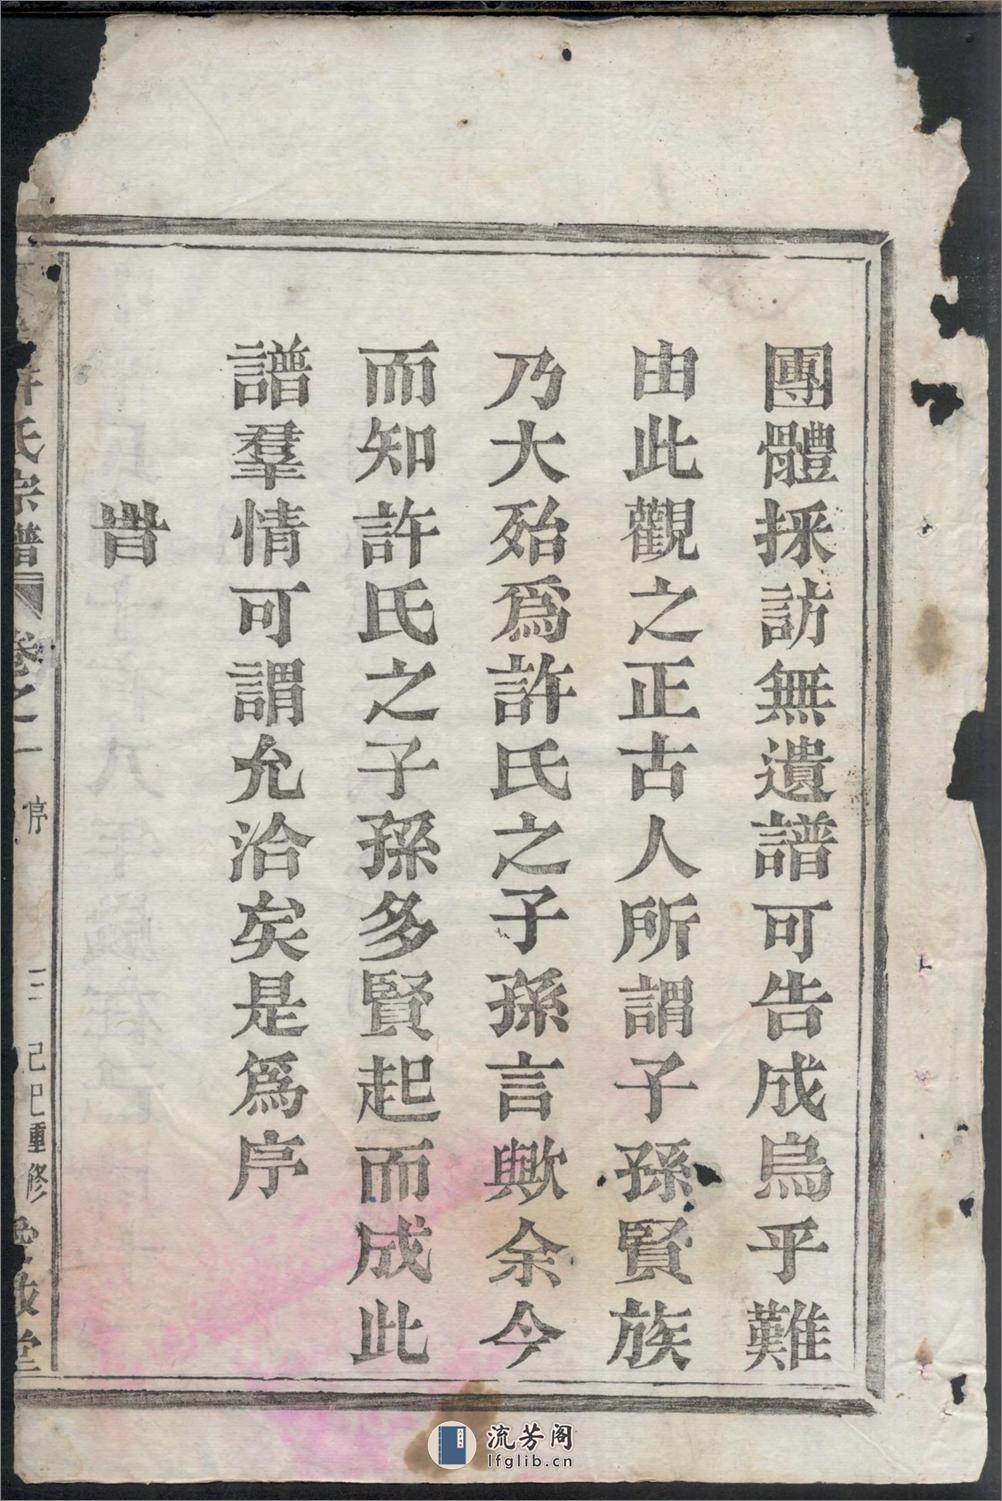 團體採訪無遺譜可告成烏乎難
由此觀之正古人所謂子孫賢族
乃大殆爲許氏之子孫言歟余今
而知許氏之子孫多賢起而成此
譜羣情可謂允洽矣是爲序
旹
許氏宗譜 卷之一 序 三 己巳重修 愛敬堂
流芳阁
lfglib.cn